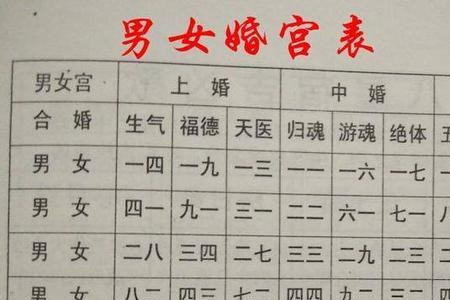 男女婚宫表
男女宫 上 婚 中 婚
合 婚 生气 福德 天医 归魂 游魂 绝体
男 女 一四 一九 一三 一一 一六 一七
男 女 四一 九一 三一 二二 六一 七一
男 女 二八 三四 二七 三三 二九 二三
男 女 八二 四三 七二 四四 九二 三二